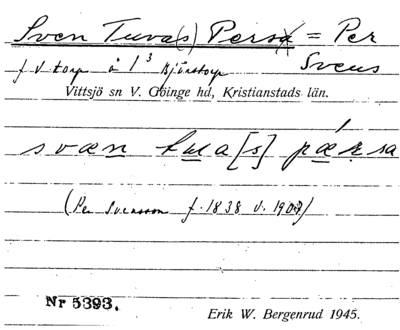 Sven Tuva(s) Persa = Per
Svens
f. v. torp å 1³ Bjärstorp
Vittsjö sn V. Göinge hd, Kristianstads län.
svæn tua[s] pǽrsa
(Per Svensson f. 1838 d. 1907)
Nr 5393.
Erik W. Bergenrud 1945.